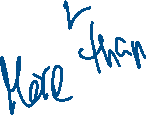 More than